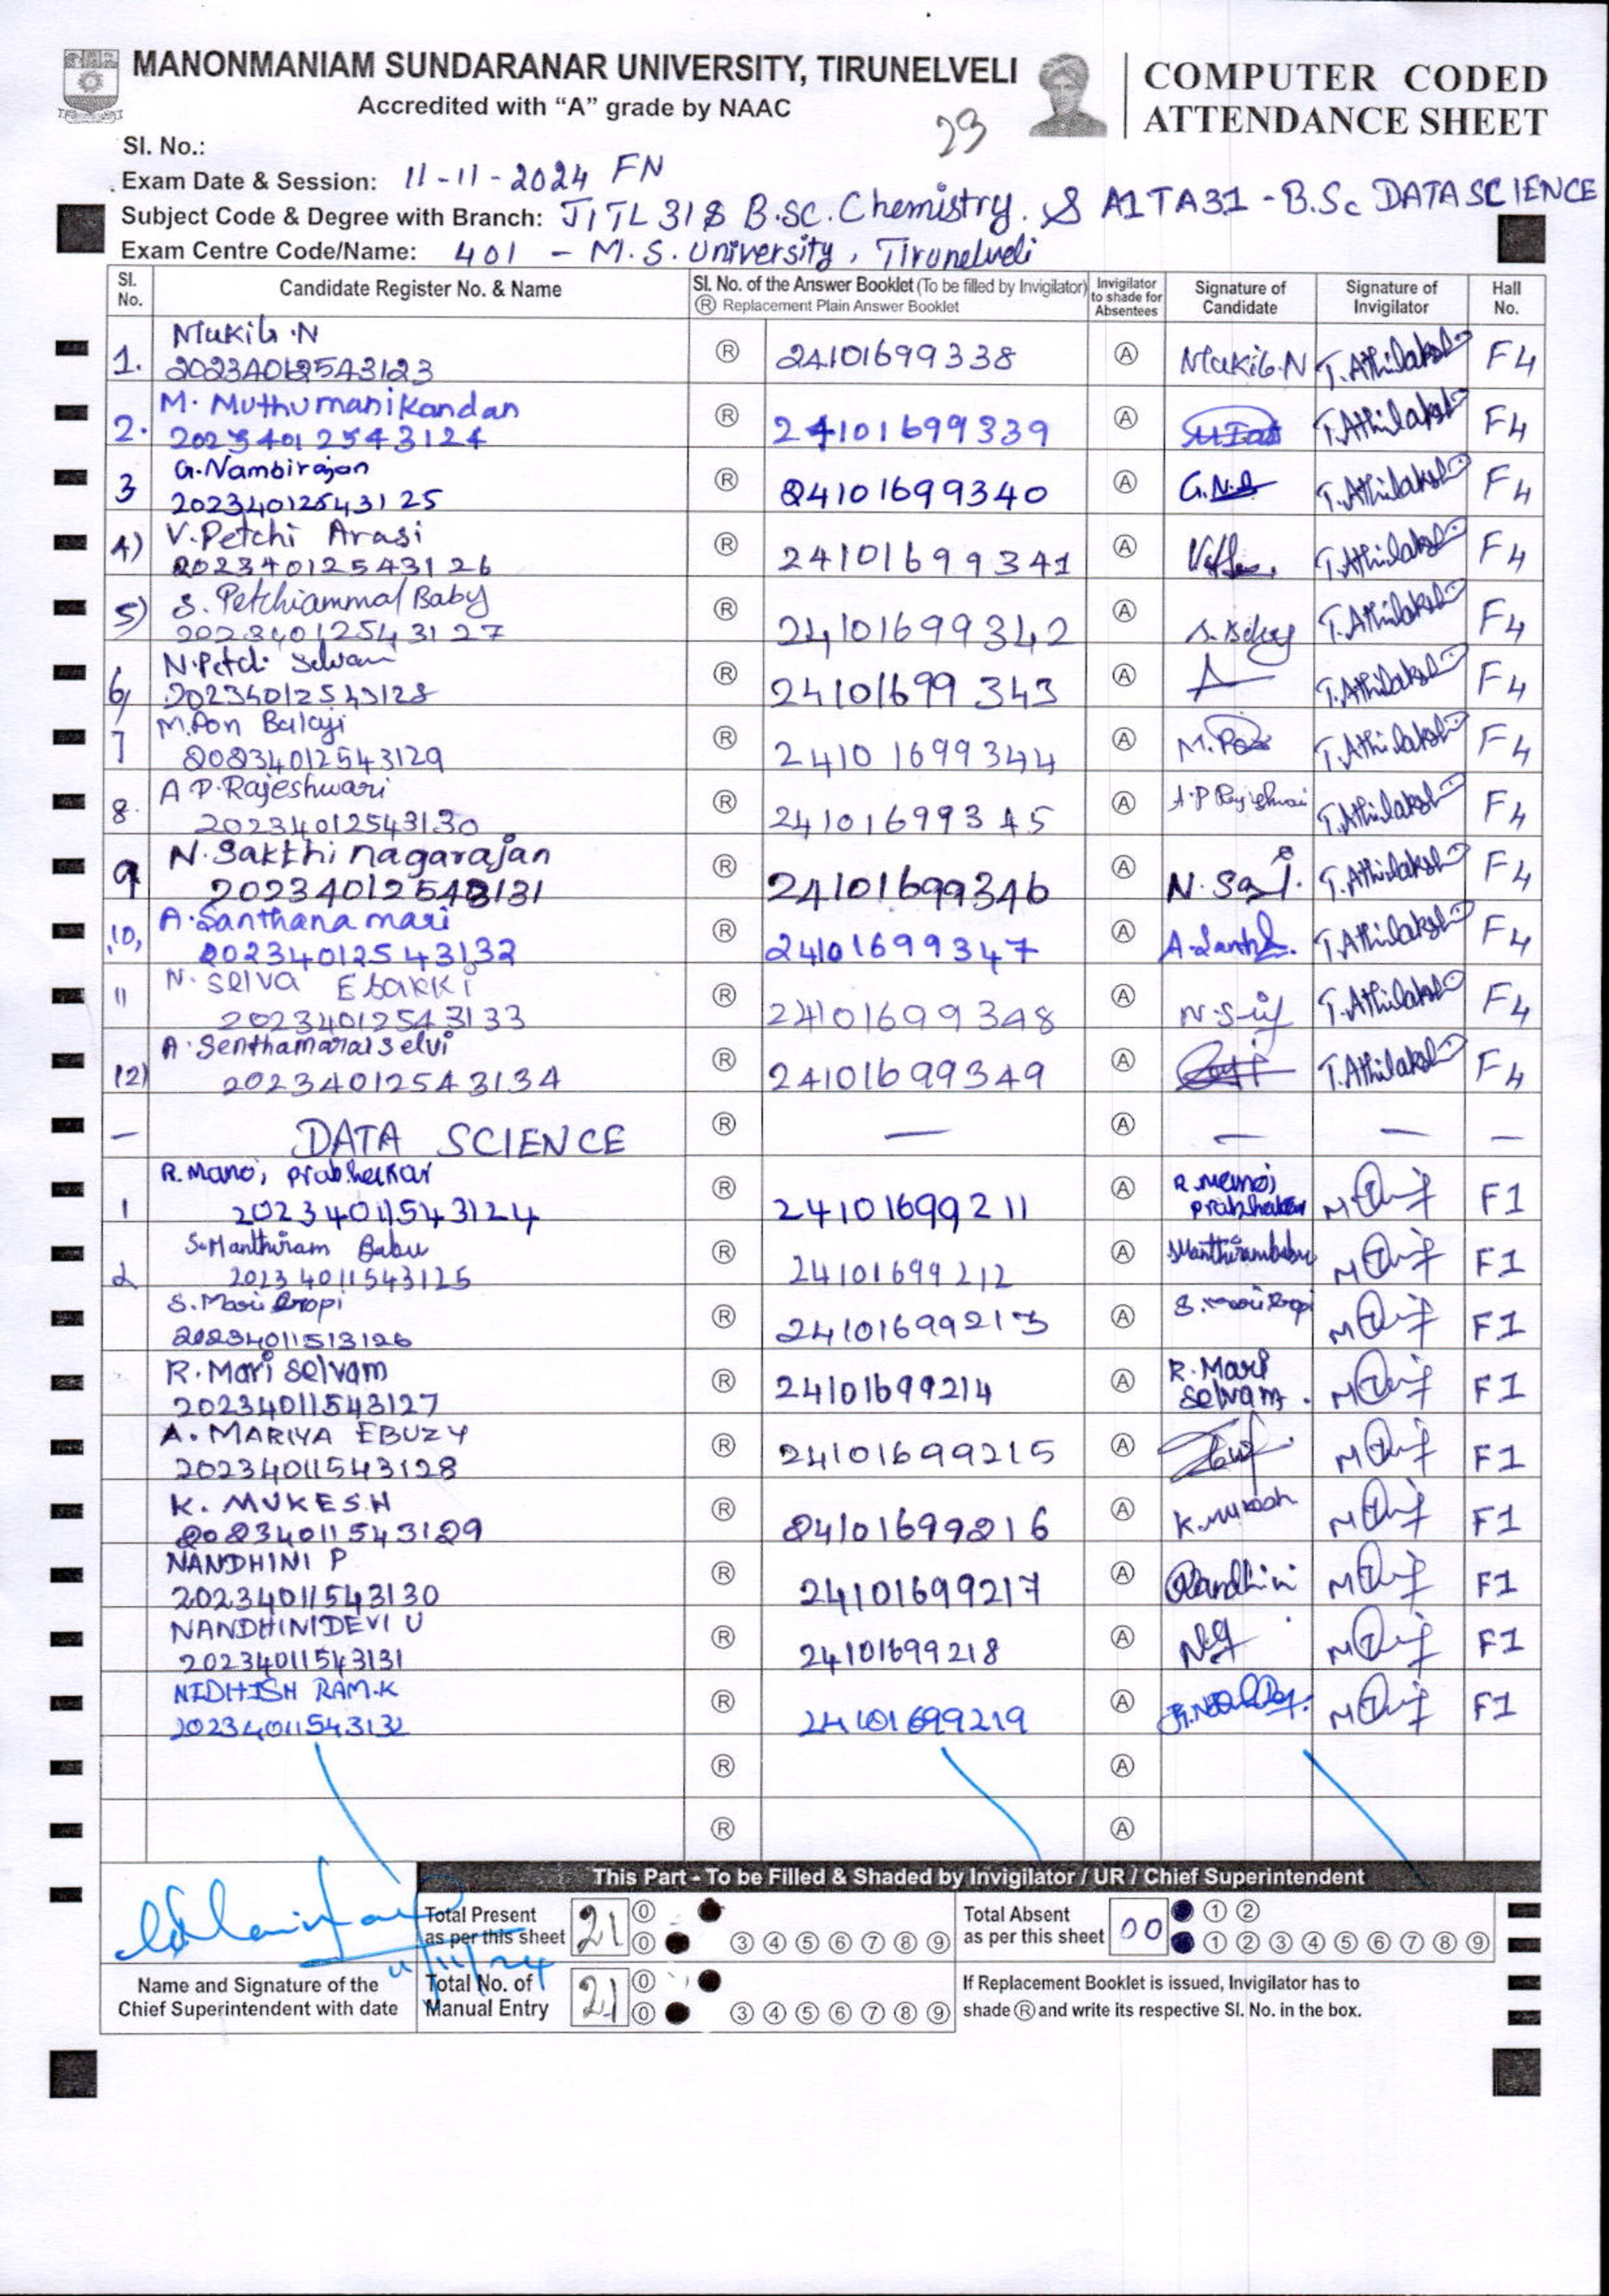 MANONMANIAM SUNDARANAR UNIVERSITY, TIRUNELVELI
Accredited with "A" grade by NAAC
COMPUTER CODED
ATTENDANCE SHEET
23
Sl. No.:
Exam Date & Session: 11-11-2024 FN
Subject Code & Degree with Branch: JITL31 & B.Sc. Chemistry. & A1TA31 - B.Sc DATA SCIENCE
Exam Centre Code/Name: 401 - M.S. University, Tirunelveli
Sl. No. Candidate Register No. & Name Sl. No. of the Answer Booklet (To be filled by Invigilator) Ⓡ Replacement Plain Answer Booklet Invigilator to shade for Absentees Signature of Candidate Signature of Invigilator Hall No.
Mukil.N
1. 20234012543123 Ⓡ 24101699338 Ⓐ Mukil.N F4
M. Muthumanikandan
2. 20234012543124 Ⓡ 24101699339 Ⓐ F4
G.Nambirajan
3 20234012543125 Ⓡ 24101699340 Ⓐ F4
V.Petchi Arasi
4) 20234012543126 Ⓡ 24101699341 Ⓐ F4
S. Petchiammal Baby
5) 20234012543127 Ⓡ 24101699342 Ⓐ F4
N.Petchi Selvam
6, 20234012543128 Ⓡ 24101699343 Ⓐ F4
M.Pon Balaji
7 20234012543129 Ⓡ 24101699344 Ⓐ F4
A P.Rajeshwari
8. 20234012543130 Ⓡ 24101699345 Ⓐ F4
N.Sakthi nagarajan
9 20234012543131 Ⓡ 24101699346 Ⓐ F4
A.Santhana mari
10, 20234012543132 Ⓡ 24101699347 Ⓐ F4
N. Selva Esakki
11 20234012543133 Ⓡ 24101699348 Ⓐ F4
A.Senthamarai selvi
12) 20234012543134 Ⓡ 24101699349 Ⓐ F4
— DATA SCIENCE Ⓡ — Ⓐ — — —
R.Manoj prabhakar
1 20234011543124 Ⓡ 24101699211 Ⓐ R.Manoj prabhakar F1
S.Manthiram Babu
2 20234011543125 Ⓡ 24101699212 Ⓐ F1
S. Mari Gropi
20234011513126 Ⓡ 24101699213 Ⓐ F1
R.Mari selvam
20234011543127 Ⓡ 24101699214 Ⓐ R.Mari selvam. F1
A. MARIYA EBUZY
20234011543128 Ⓡ 24101699215 Ⓐ F1
K. MUKESH
20234011543129 Ⓡ 24101699216 Ⓐ K.Mukesh F1
NANDHINI P
20234011543130 Ⓡ 24101699217 Ⓐ Nandhini F1
NANDHINIDEVI U
20234011543131 Ⓡ 24101699218 Ⓐ F1
NIDHISH RAM.K
20234011543132 Ⓡ 24101699219 Ⓐ F1
Ⓡ Ⓐ
Ⓡ Ⓐ
This Part - To be Filled & Shaded by Invigilator / UR / Chief Superintendent
Total Present as per this sheet 21 ⓪
⓪ ③ ④ ⑤ ⑥ ⑦ ⑧ ⑨
Total Absent as per this sheet 00 ① ②
① ② ③ ④ ⑤ ⑥ ⑦ ⑧ ⑨
11/11/24
Name and Signature of the
Chief Superintendent with date
Total No. of Manual Entry 21 ⓪
⓪ ③ ④ ⑤ ⑥ ⑦ ⑧ ⑨
If Replacement Booklet is issued, Invigilator has to
shade Ⓡ and write its respective Sl. No. in the box.